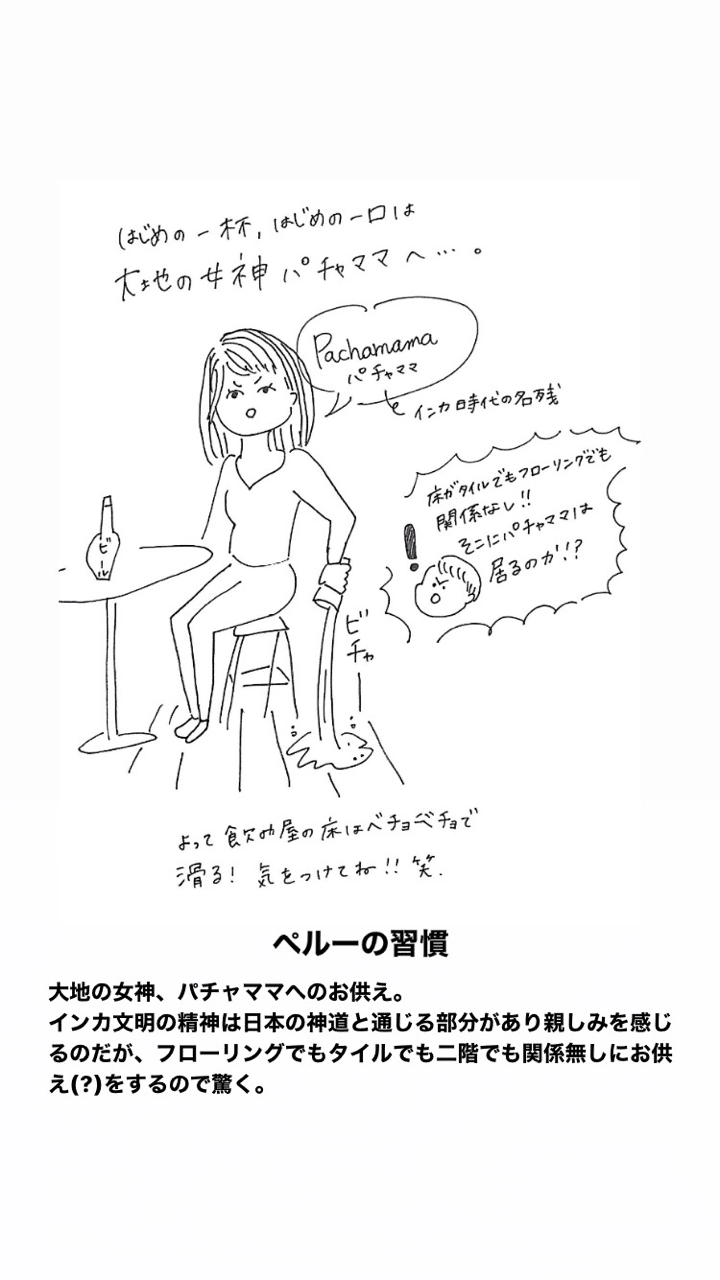 はじめの一杯,はじめの一口は
大地の女神パチャママへ…。
Pachamama
パチャママ
インカ時代の名残
床がタイルでもフローリングでも
関係なし!!
そこにパチャママは
居るのか!?
ビール
ビチャー
よって飲み屋の床はベチョベチョで
滑る! 気をつけてね!! 笑.
ペルーの習慣
大地の女神、パチャママへのお供え。
インカ文明の精神は日本の神道と通じる部分があり親しみを感じ
るのだが、フローリングでもタイルでも二階でも関係無しにお供
え(?)をするので驚く。